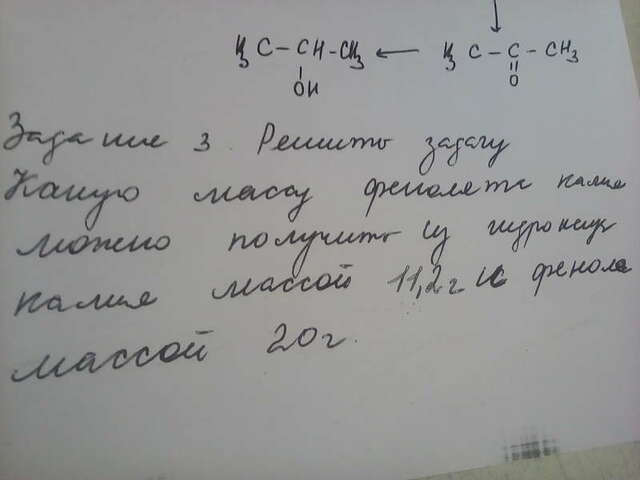 H₃C-CH-CH₃ ← H₃C-C-CH₃
OH O
Задание 3. Решить задачу
Какую массу фенолята калия
можно получить из гидроксида
калия массой 11,2г и фенола
массой 20г.